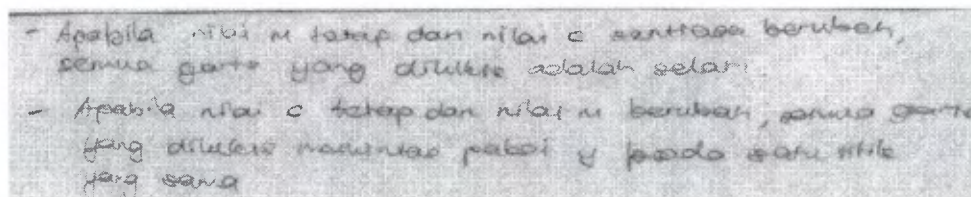 - Apabila nilai m tetap dan nilai c sentiasa berubah,
semua garis yang dilukis adalah selari.
- Apabila nilai c tetap dan nilai m berubah, semua garis
yang dilukis memintas paksi y pada satu titik
yang sama